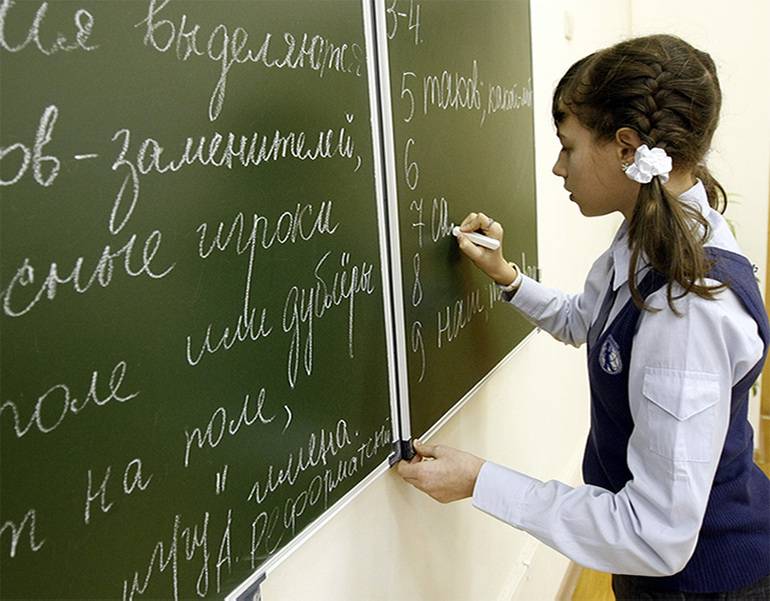 ия выделяются
ов-заменителей,
сные игроки
поле или дублёры
т на поле,
игру" имена.
А. Реформатский
3-4.
5 таков; какой-
6
7 са
8
9 нам